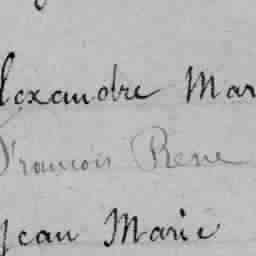 lexandre Mar
François Rene
Jean Marie